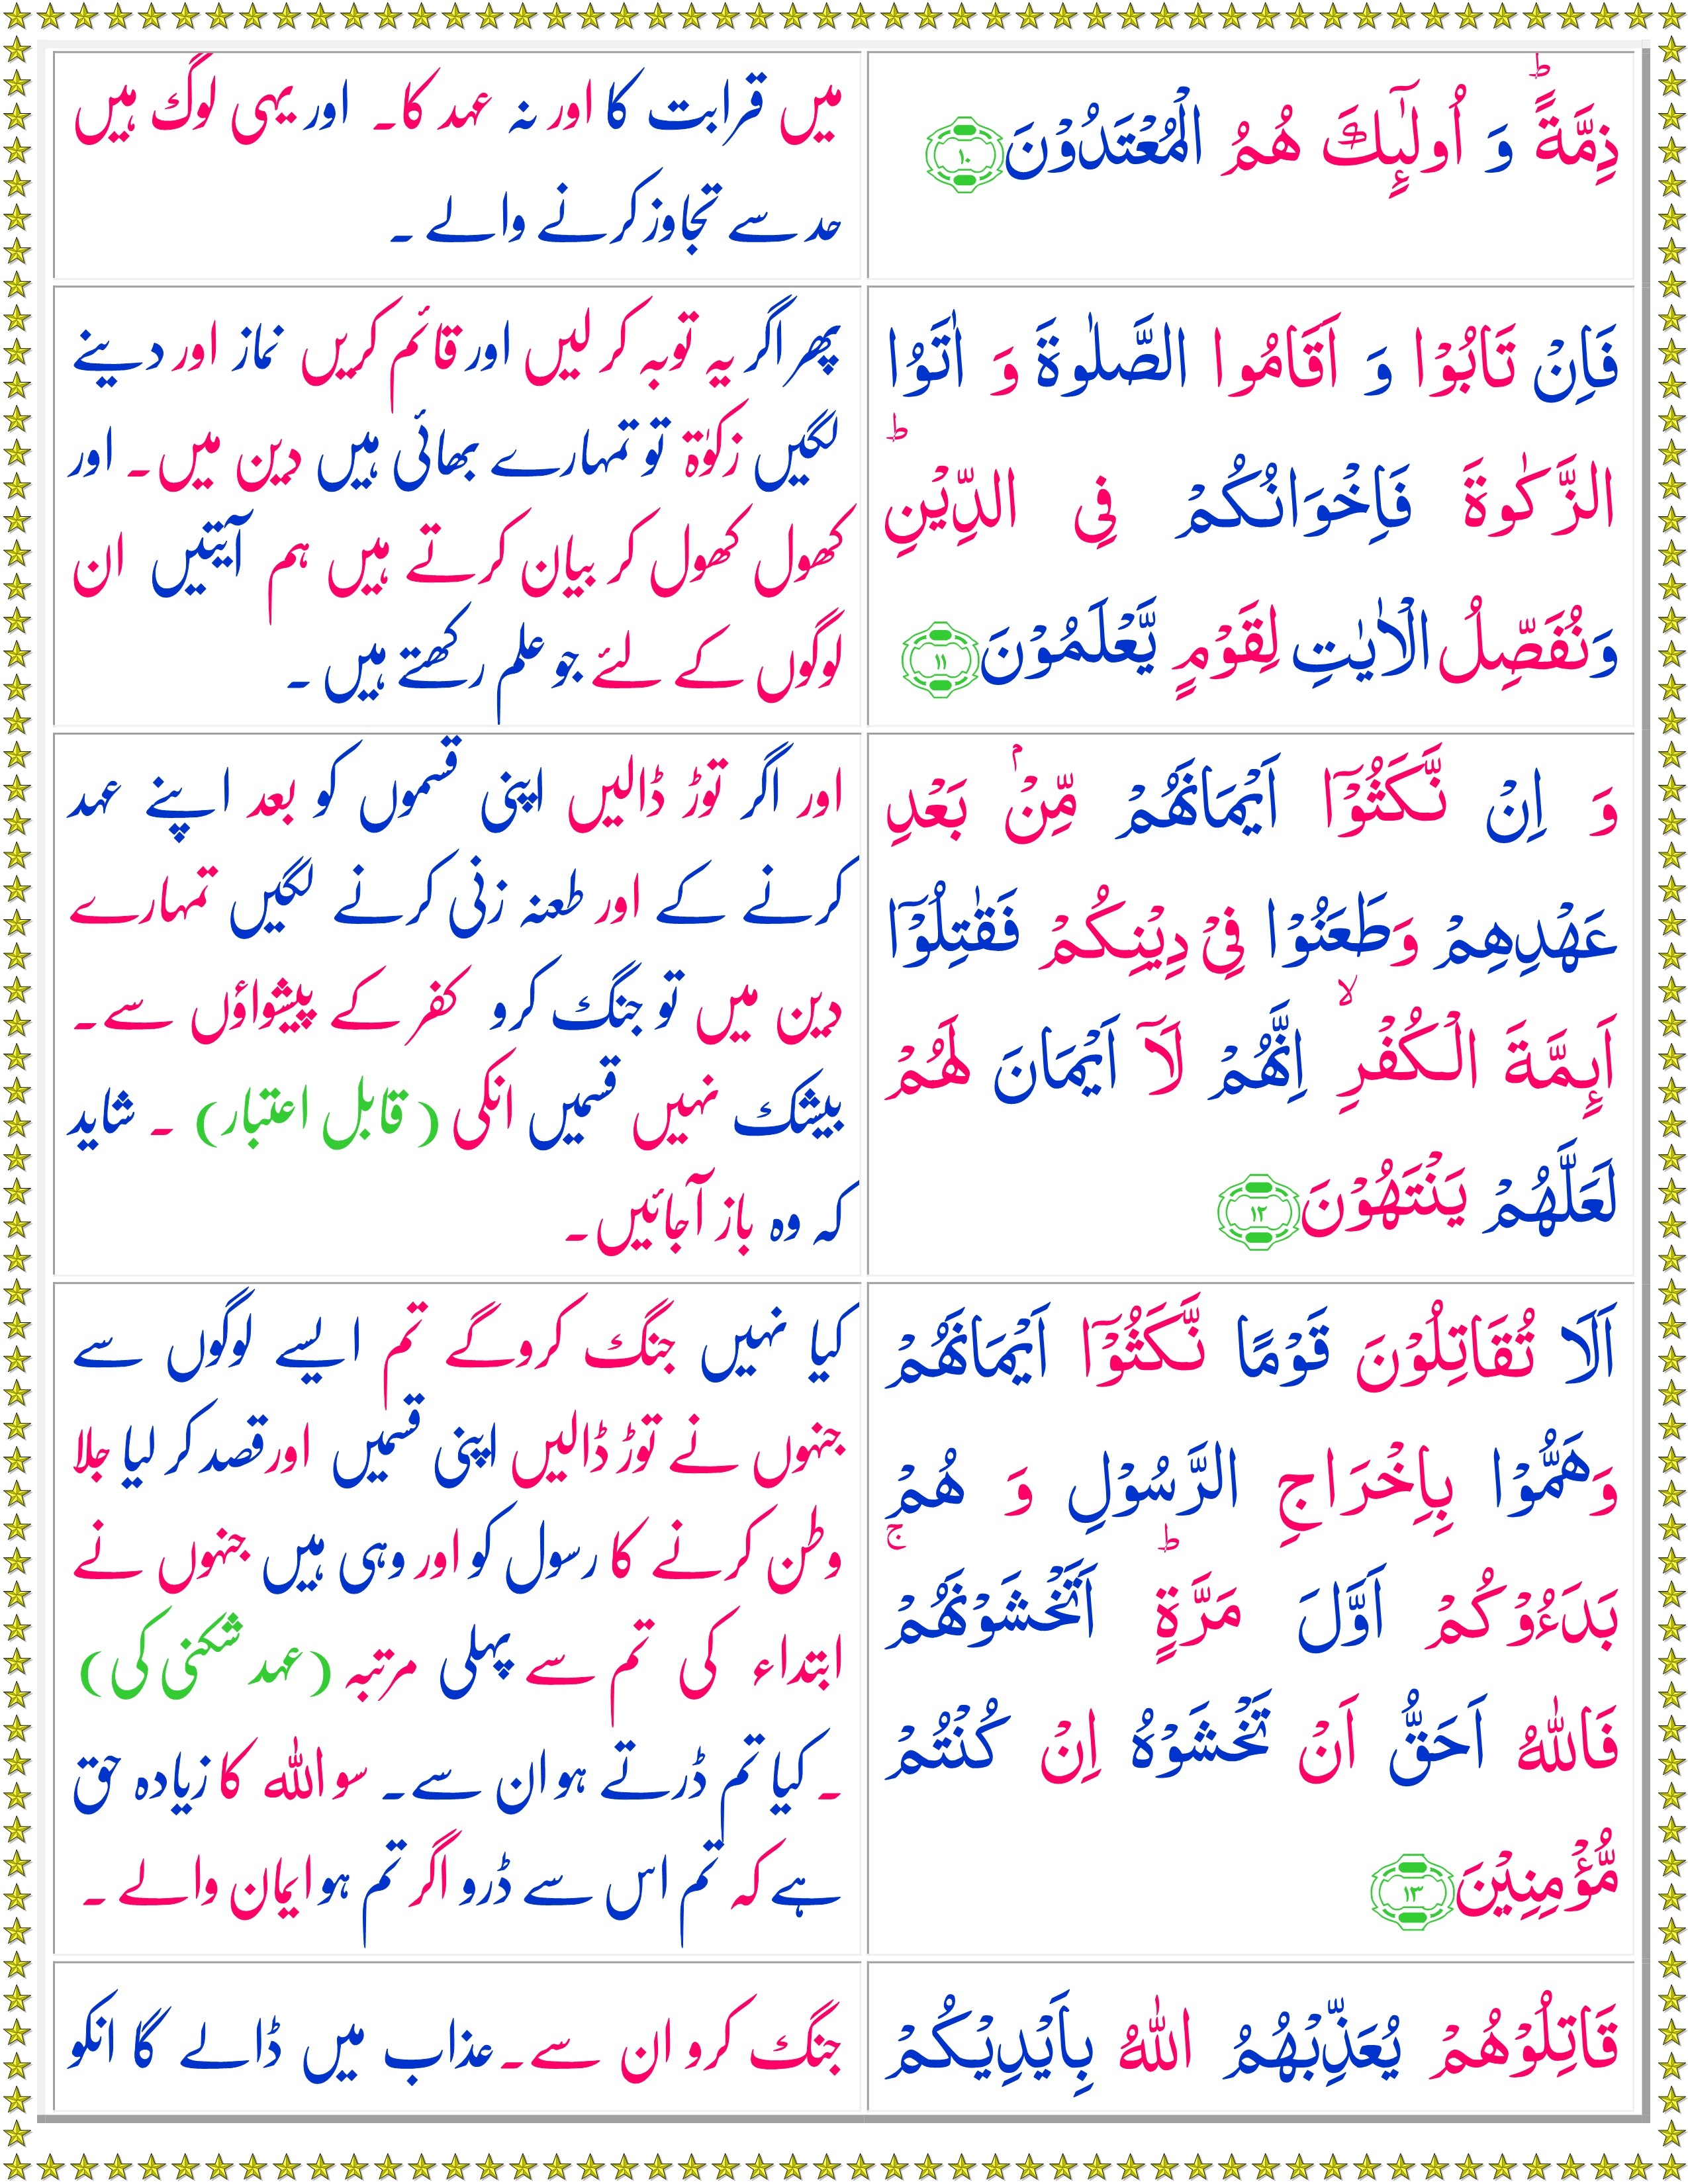 ذِمَّةً ؕ وَ اُولٰٓٮِٕكَ هُمُ الْمُعْتَدُوْنَ ١٠
میں قرابت کا اور نہ عہد کا۔ اور یہی لوگ ہیں
حد سے تجاوز کرنے والے ۔
فَاِنْ تَابُوْا وَ اَقَامُوا الصَّلٰوةَ وَ اٰتَوُا
الزَّكٰوةَ فَاِخْوَانُكُمْ فِى الدِّيْنِ ؕ
وَنُفَصِّلُ الْاٰيٰتِ لِقَوْمٍ يَّعْلَمُوْنَ ١١
پھر اگر یہ توبہ کر لیں اور قائم کریں نماز اور دینے
لگیں زکوٰۃ تو تمہارے بھائی ہیں دین میں۔ اور
کھول کھول کر بیان کرتے ہیں ہم آیتیں ان
لوگوں کے لئے جو علم رکھتے ہیں ۔
وَ اِنْ نَّكَثُوْۤا اَيْمَانَهُمْ مِّنْۢ بَعْدِ
عَهْدِهِمْ وَطَعَنُوْا فِىْ دِيْنِكُمْ فَقٰتِلُوْۤا
اَٮِٕمَّةَ الْكُفْرِ ۙ اِنَّهُمْ لَاۤ اَيْمَانَ لَهُمْ
لَعَلَّهُمْ يَنْتَهُوْنَ ١٢
اور اگر توڑ ڈالیں اپنی قسموں کو بعد اپنے عہد
کرنے کے اور طعنہ زنی کرنے لگیں تمہارے
دین میں تو جنگ کرو کفر کے پیشواؤں سے۔
بیشک نہیں قسمیں انکی (قابل اعتبار) ۔ شاید
کہ وہ باز آجائیں۔
اَلَا تُقَاتِلُوْنَ قَوْمًا نَّكَثُوْۤا اَيْمَانَهُمْ
وَهَمُّوْا بِاِخْرَاجِ الرَّسُوْلِ وَ هُمْ
بَدَءُوْكُمْ اَوَّلَ مَرَّةٍ ؕ اَتَخْشَوْنَهُمْ ۚ
فَاللّٰهُ اَحَقُّ اَنْ تَخْشَوْهُ اِنْ كُنْتُمْ
مُّؤْمِنِيْنَ ١٣
کیا نہیں جنگ کروگے تم ایسے لوگوں سے
جنہوں نے توڑ ڈالیں اپنی قسمیں اور قصد کر لیا جلا
وطن کرنے کا رسول کو اور وہی ہیں جنہوں نے
ابتداء کی تم سے پہلی مرتبہ (عہد شکنی کی)
۔ کیا تم ڈرتے ہو ان سے۔ سو اللہ کا زیادہ حق
ہے کہ تم اس سے ڈرو اگر تم ہو ایمان والے ۔
قَاتِلُوْهُمْ يُعَذِّبْهُمُ اللّٰهُ بِاَيْدِيْكُمْ
جنگ کرو ان سے۔ عذاب میں ڈالے گا انکو